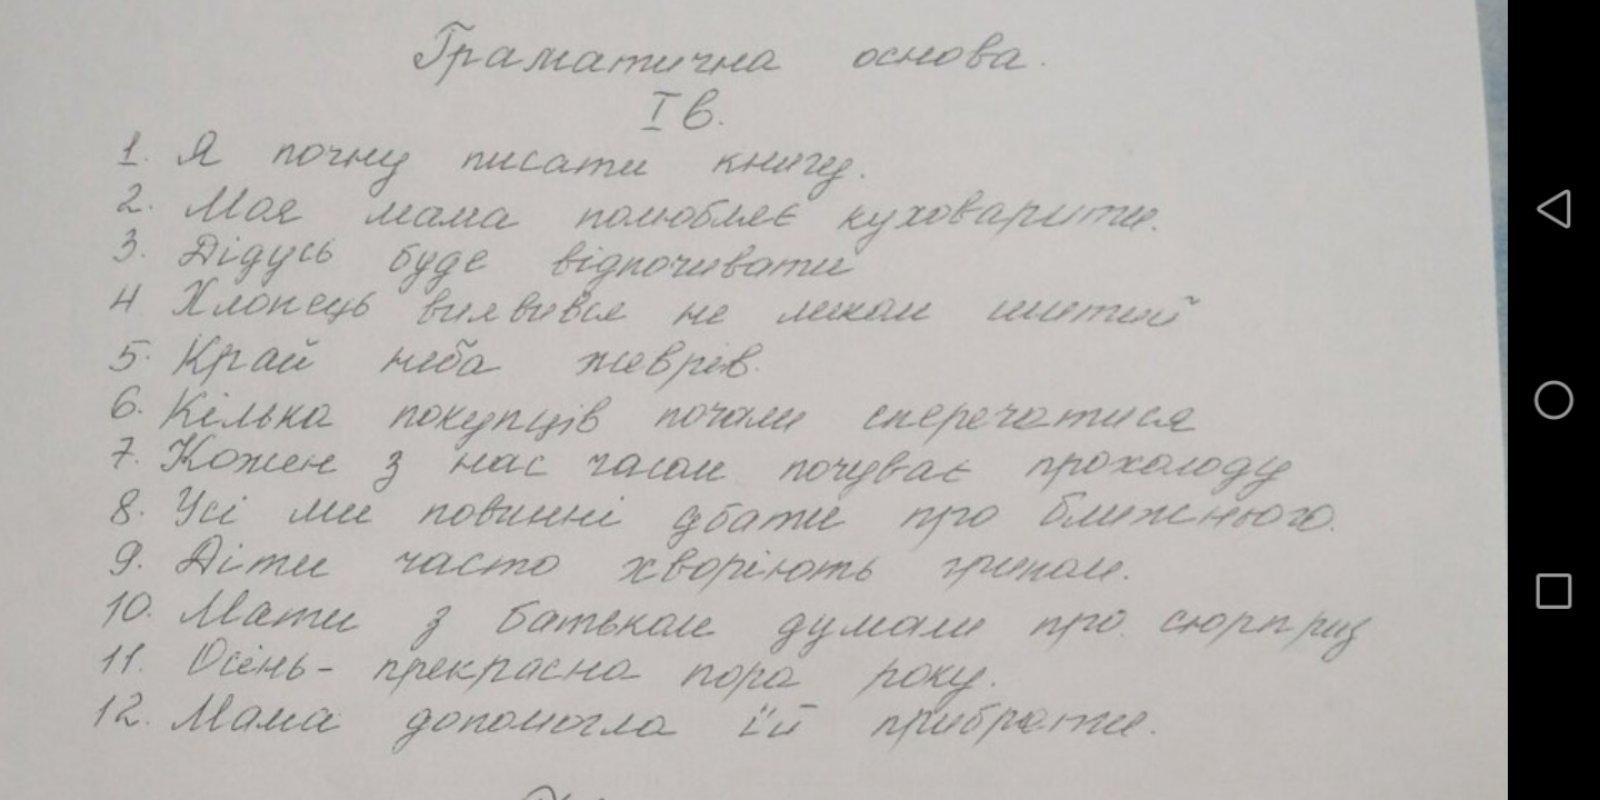 Граматична основа.
I в.
1. Я почну писати книгу.
2. Моя мама полюбляє куховарити.
3. Дідусь буде відпочивати
4 Хлопець виявився не ликом шитий
5. Край неба жеврів.
6. Кілька покупців почали сперечатися
7. Кожен з нас часом почуває прохолоду
8. Усі ми повинні дбати про ближнього.
9. Діти часто хворіють грипом.
10. Мати з батьком думали про сюрприз
11. Осінь - прекрасна пора року.
12. Мама допомогла їй прибрати.